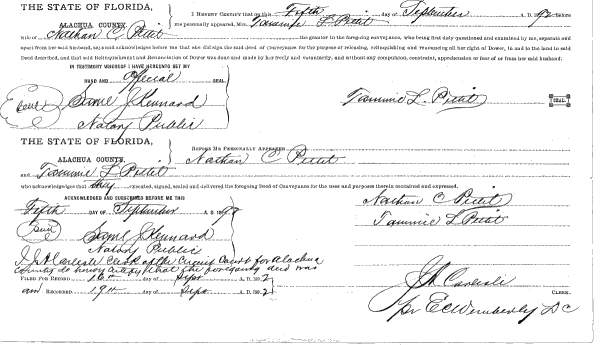 THE STATE OF FLORIDA,
ALACHUA COUNTY.
I HEREBY CERTIFY that on this Fifth day of September A. D. 189 before
me personally appeared, Mrs. Tammie L Pettit
wife of Nathan C. Pettit the grantor in the foregoing conveyance, who being first duly questioned and examined by me, separate and
apart from her said husband, says and acknowledges before me that she did sign the said deed of Conveyance for the purpose of releasing, relinquishing and renouncing all her right of Dower, in and to the land in said
Deed described, and that said Relinquishment and Renunciation of Dower was done and made by her freely and voluntarily, and without any compulsion, constraint, apprehension or fear of or from her said husband.
IN TESTIMONY WHEREOF I HAVE HEREUNTO SET MY
HAND AND official SEAL.
Seal Saml J Kennard
Tammie L. Pettit SEAL.
Notary Public
THE STATE OF FLORIDA,
ALACHUA COUNTY.
BEFORE ME PERSONALLY APPEARED Nathan C Pettit
and Tammie L Pettit
who acknowledges that they executed, signed, sealed and delivered the foregoing Deed of Conveyance for the uses and purposes therein contained and expressed.
ACKNOWLEDGED AND SUBSCRIBED BEFORE ME THIS
Nathan C Pettit
Fifth DAY OF September A. D. 189
Tammie L Pettit
Seal Saml J Kennard
Notary Public
I J A Carlisle Clerk of the Circuit Court for Alachua
County do hereby certify that the foregoing deed was
FILED FOR RECORD 16th day of Sept. A.D. 1892
J A Carlisle CLERK.
and RECORDED 19th day of Sept. A.D. 1892
pr E C Wimberly D C